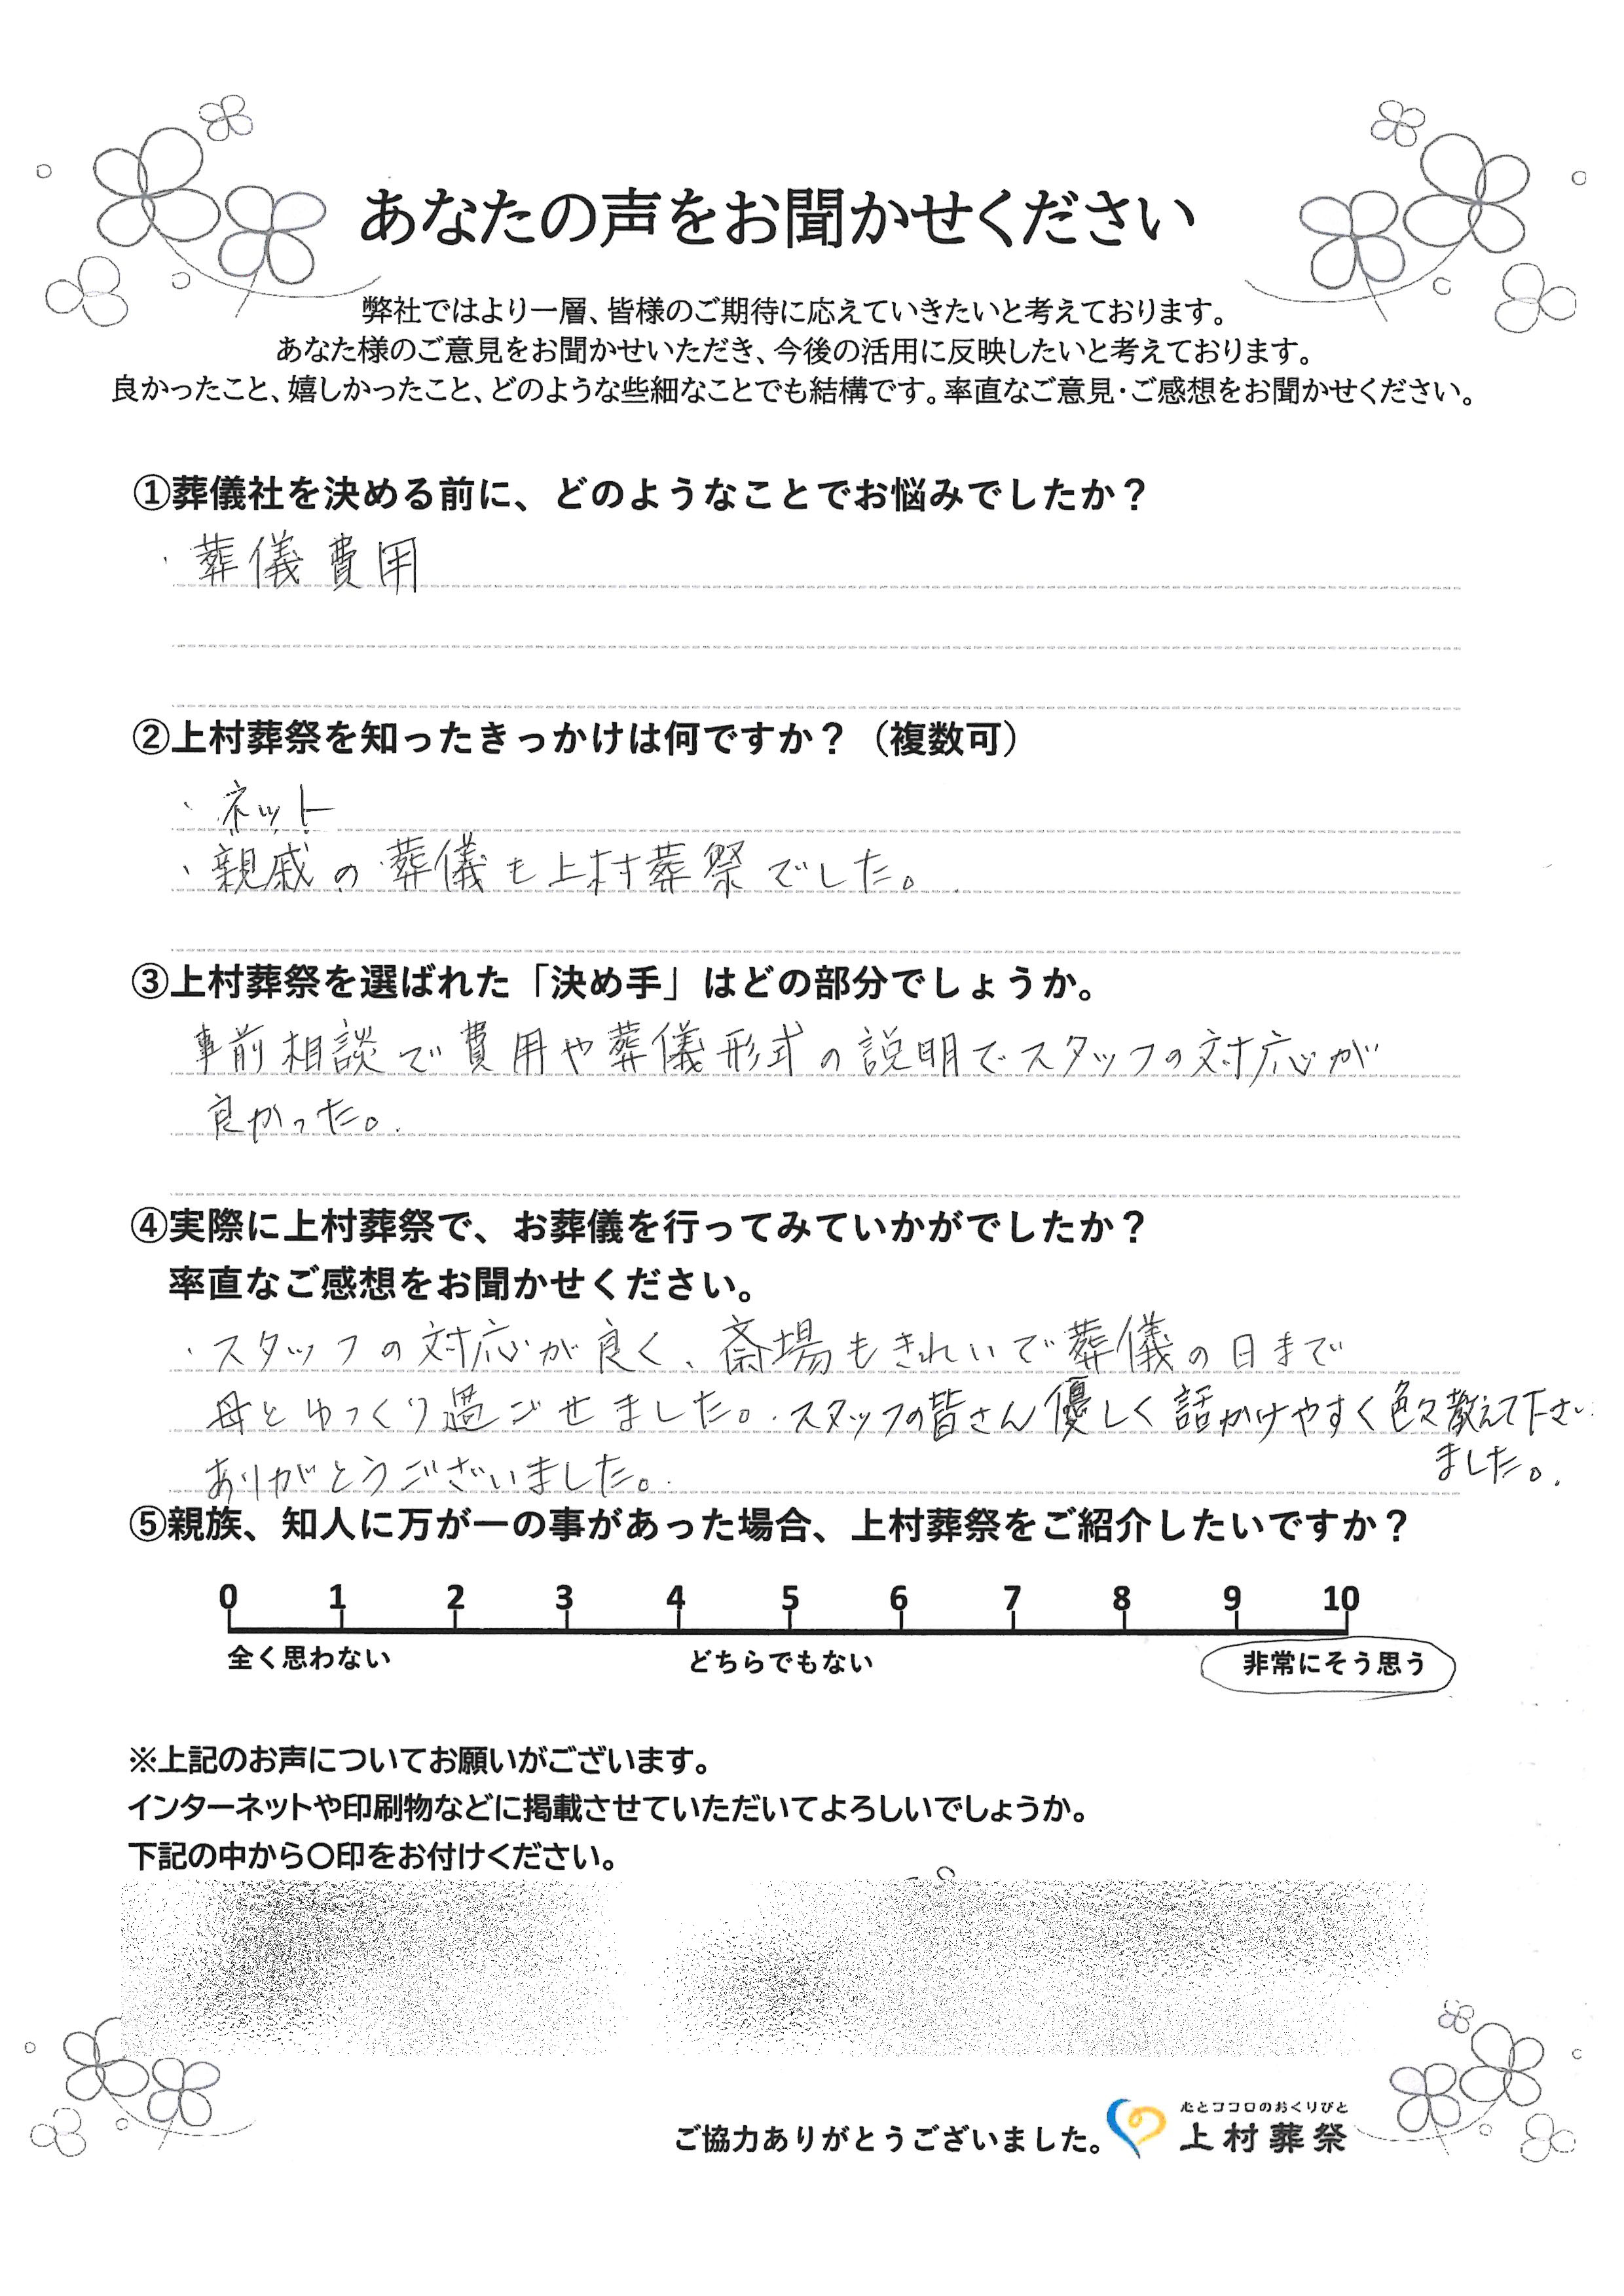 あなたの声をお聞かせください
弊社ではより一層、皆様のご期待に応えていきたいと考えております。
あなた様のご意見をお聞かせいただき、今後の活用に反映したいと考えております。
良かったこと、嬉しかったこと、どのような些細なことでも結構です。率直なご意見・ご感想をお聞かせください。
①葬儀社を決める前に、どのようなことでお悩みでしたか？
・葬儀費用
②上村葬祭を知ったきっかけは何ですか？（複数可）
・ネット
・親戚の葬儀も上村葬祭でした。
③上村葬祭を選ばれた「決め手」はどの部分でしょうか。
事前相談で費用や葬儀形式の説明でスタッフの対応が
良かった。
④実際に上村葬祭で、お葬儀を行ってみていかがでしたか？
率直なご感想をお聞かせください。
・スタッフの対応が良く、斎場もきれいで葬儀の日まで
母とゆっくり過ごせました。スタッフの皆さん優しく話かけやすく色々教えて下さい
ました。
ありがとうございました。
⑤親族、知人に万が一の事があった場合、上村葬祭をご紹介したいですか？
0 1 2 3 4 5 6 7 8 9 10
全く思わない どちらでもない 非常にそう思う
※上記のお声についてお願いがございます。
インターネットや印刷物などに掲載させていただいてよろしいでしょうか。
下記の中から〇印をお付けください。
ご協力ありがとうございました。
心とココロのおくりびと
上村葬祭